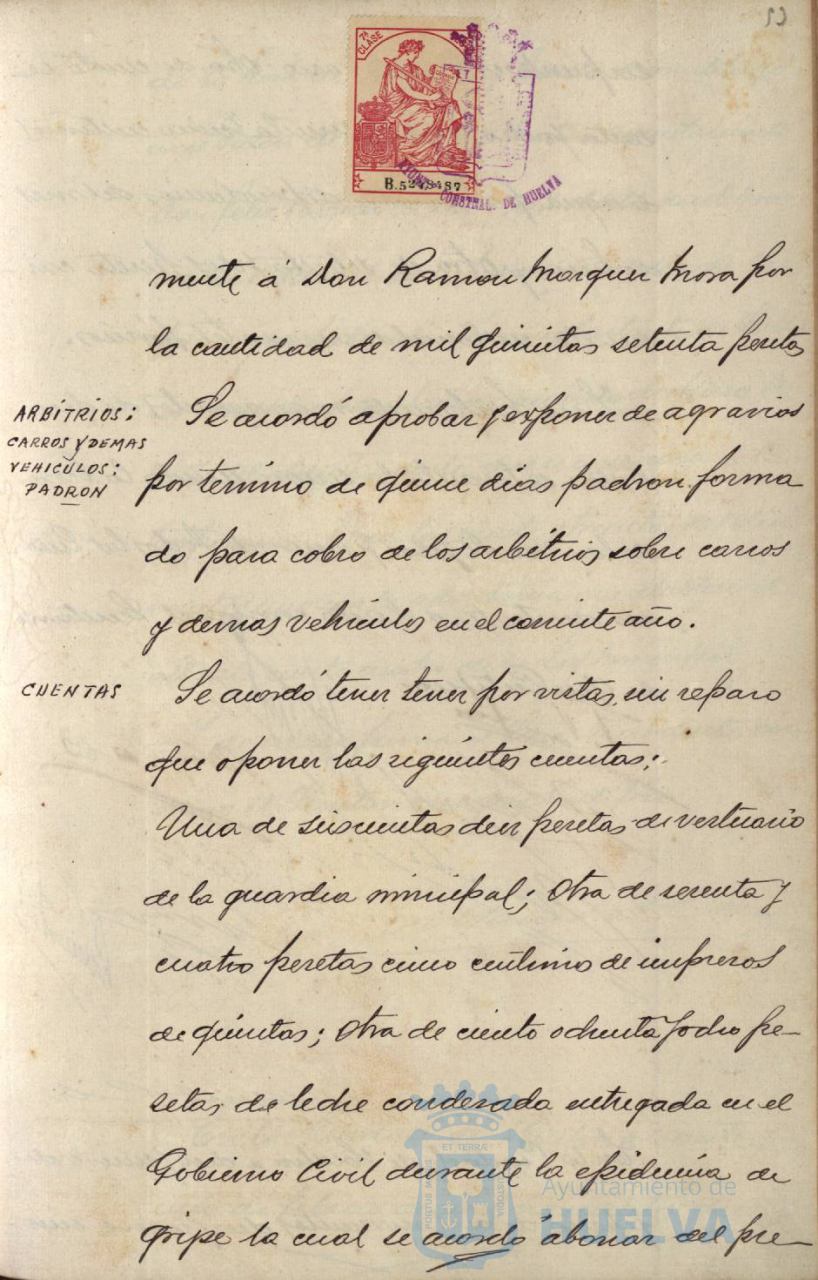 53
7ª CLASE
B.5249487
AYUNTº CONSTNAL. DE HUELVA
mente á Don Ramon Marquez Mora por
la cantidad de mil quinientas setenta pesetas
ARBITRIOS:
CARROS Y DEMAS
VEHICULOS:
PADRON
Se acordó aprobar y exponer de agravios
por termino de quince dias padron forma
do para cobro de los arbitrios sobre carros
y demas vehiculos en el corriente año.
CUENTAS
Se acordó tener tener por vistas sin reparo
que oponer las siguientes cuentas;
Una de seiscientas diez pesetas de vestuario
de la guardia municipal; Otra de sesenta y
cuatro pesetas cinco centimos de impresos
de quintas; Otra de ciento ochenta y ocho pe-
setas de leche condensada entregada en el
Gobierno Civil durante la epidemia de
gripe la cual se acordó abonar del pre-
ET TERRÆ
PORTUS MARIS
CUSTODIA
Ayuntamiento de
HUELVA